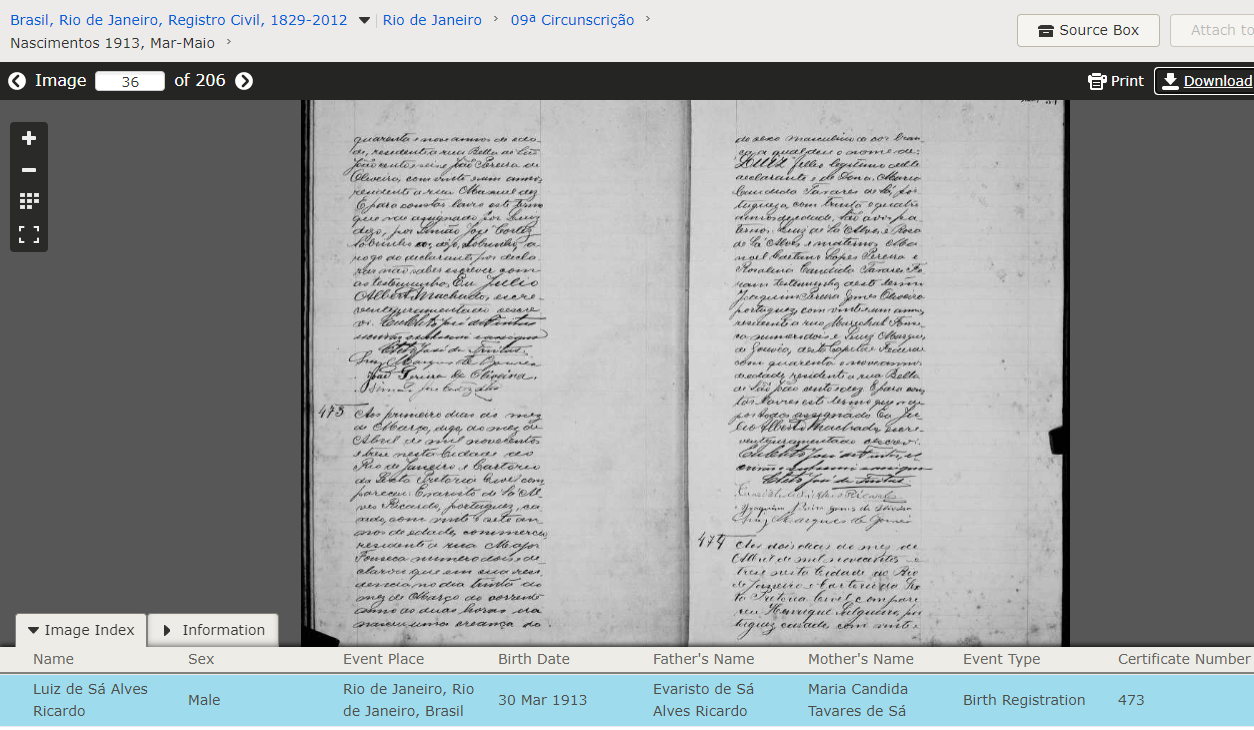 Brasil, Rio de Janeiro, Registro Civil, 1829-2012 Rio de Janeiro 09ª Circunscrição
Nascimentos 1913, Mar-Maio
Source Box
Attach to
Image 36 of 206
Print
Download
quarenta e nove annos de eda-
de, residente a rua Bella de São
João cento e João Pereira de
Oliveira, com vinte e um annos,
residente a rua Manuel dez
E para constar lavro este termo
que vae assignado por Luiz
digo, por Simão José Cortez
Sobrinho digo, Sobrinho, a
rogo do declarante por decla-
rar não saber escrever com
as testemunhas, Eu Julio
Alberto Machado, escre-
vente juramentado escre-
vi.
José de Freitas
João Pereira de Oliveira
473 Aos primeiro dias do mez
de Março, digo, do mez de
Abril de mil novecentos
e treze nesta Cidade do
Rio de Janeiro e Cartorio
da Sexta Pretoria Civel com-
pareceu Evaristo de Sá Al-
ves Ricardo, portuguez, ca-
sado, com vinte e sete an-
nos de edade, commercio,
residente a rua Major
Fonseca numero dois e de-
clarou que em sua resi-
dencia no dia trinta do
mez de Março do corrente
anno as duas horas da
nasceu uma creança do
do sexo masculino de cor bran-
ca, a qual deu o nome de:
LUIZ filho legitimo delle
declarante e de Dona Maria
Candida Tavares de Sá, por-
tugueza, com trinta e quatro
annos de edade, São avós pa-
ternos: Luiz de Sá Alves e Rosa
de Sá Alves e maternos Ma-
noel Caetano Lopes Pereira e
Rosalina Candida Tavares Fo-
ram testemunhas deste termo
Joaquim Pereira Gomes Oliveira
portuguez, com vinte e um annos,
residente a rua Marechal Fonse-
ca numero dois e Luiz Marques
de Gouvêa, desta Capital Federal
com quarenta e nove annos
de edade, residente a rua Bella
de São João cento e dez. E para cons-
tar lavrei este termo que vae
por todos assignado Eu Ju-
lio Alberto Machado, escre-
vente juramentado escrevi.
José de Freitas
Evaristo de Sá Alves Ricardo
Joaquim Pereira Gomes de Oliveira
Luiz Marques de Gouvêa
474 Aos dois dias do mez de
Abril de mil novecentos e
treze nesta Cidade do Rio
de Janeiro e Cartorio da Sex-
ta Pretoria Civel compare-
ceu Henrique por-
tuguez casado, com vinte e
Image Index
Information
Name Sex Event Place Birth Date Father's Name Mother's Name Event Type Certificate Number
Luiz de Sá Alves Ricardo Male Rio de Janeiro, Rio de Janeiro, Brasil 30 Mar 1913 Evaristo de Sá Alves Ricardo Maria Candida Tavares de Sá Birth Registration 473